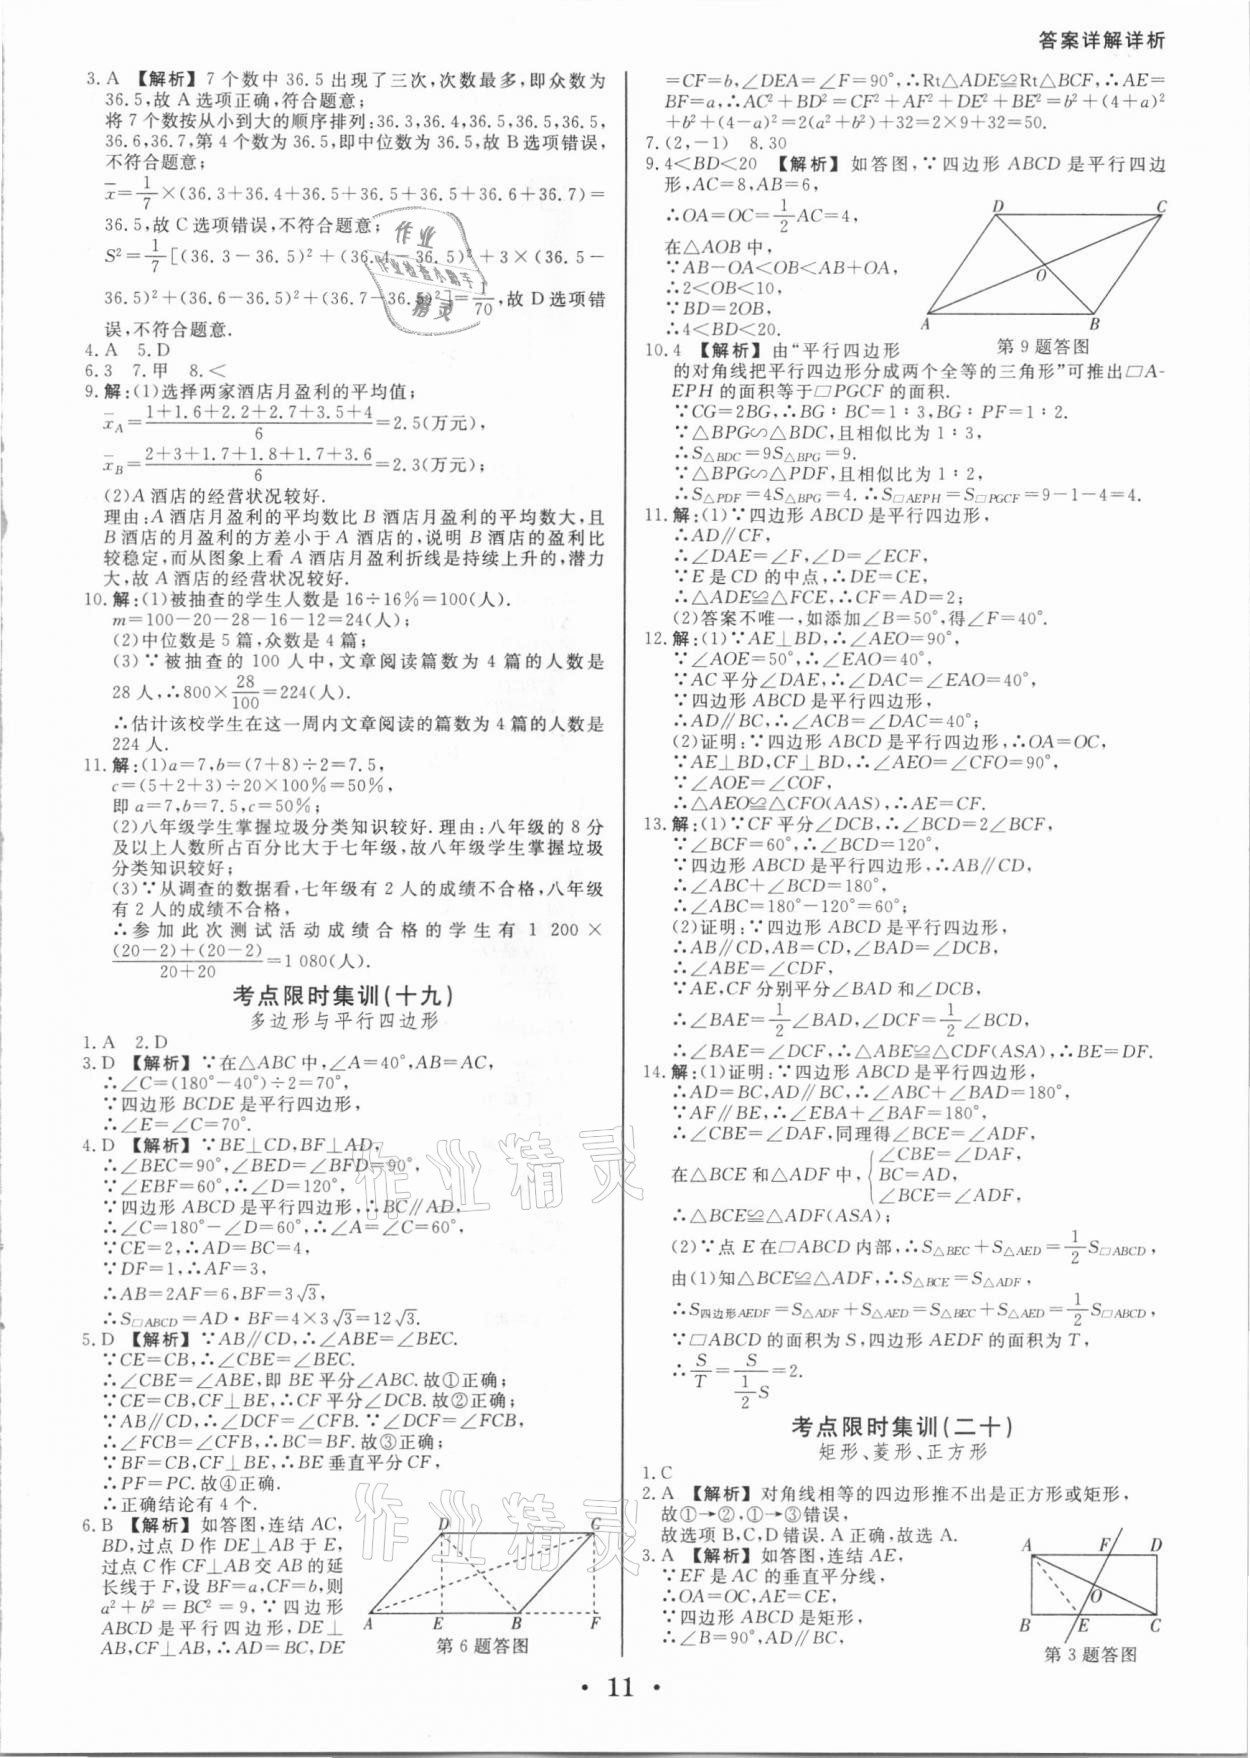 答案详解详析
3. A 【解析】7 个数中 36.5 出现了三次,次数最多,即众数为
36.5,故 A 选项正确,符合题意;
将 7 个数按从小到大的顺序排列:36.3,36.4,36.5,36.5,36.5,
36.6,36.7,第 4 个数为 36.5,即中位数为 36.5,故 B 选项错误,
不符合题意;
x̄=1/7×(36.3+36.4+36.5+36.5+36.5+36.6+36.7)=
36.5,故 C 选项错误,不符合题意;
S²=1/7[(36.3-36.5)²+(36.4-36.5)²+3×(36.5-
36.5)²+(36.6-36.5)²+(36.7-36.5)²]=1/70,故 D 选项错
误,不符合题意.
4. A 5. D
6. 3 7. 甲 8. <
9. 解:(1)选择两家酒店月盈利的平均值;
x̄A=(1+1.6+2.2+2.7+3.5+4)/6=2.5(万元),
x̄B=(2+3+1.7+1.8+1.7+3.6)/6=2.3(万元);
(2)A 酒店的经营状况较好.
理由:A 酒店月盈利的平均数比 B 酒店月盈利的平均数大,且
B 酒店的月盈利的方差小于 A 酒店的,说明 B 酒店的盈利比
较稳定,而从图象上看 A 酒店月盈利折线是持续上升的,潜力
大,故 A 酒店的经营状况较好.
10. 解:(1)被抽查的学生人数是 16÷16%=100(人).
m=100-20-28-16-12=24(人);
(2)中位数是 5 篇,众数是 4 篇;
(3)∵被抽查的 100 人中,文章阅读篇数为 4 篇的人数是
28 人,∴800×28/100=224(人).
∴估计该校学生在这一周内文章阅读的篇数为 4 篇的人数是
224 人.
11. 解:(1)a=7,b=(7+8)÷2=7.5,
c=(5+2+3)÷20×100%=50%,
即 a=7,b=7.5,c=50%;
(2)八年级学生掌握垃圾分类知识较好.理由:八年级的 8 分
及以上人数所占百分比大于七年级,故八年级学生掌握垃圾
分类知识较好;
(3)∵从调查的数据看,七年级有 2 人的成绩不合格,八年级
有 2 人的成绩不合格,
∴参加此次测试活动成绩合格的学生有 1 200×
((20-2)+(20-2))/(20+20)=1 080(人).
考点限时集训(十九)
多边形与平行四边形
1. A 2. D
3. D 【解析】∵在△ABC 中,∠A=40°,AB=AC,
∴∠C=(180°-40°)÷2=70°,
∵四边形 BCDE 是平行四边形,
∴∠E=∠C=70°.
4. D 【解析】∵BE⊥CD,BF⊥AD,
∴∠BEC=90°,∠BED=∠BFD=90°,
∵∠EBF=60°,∴∠D=120°,
∵四边形 ABCD 是平行四边形,∴BC∥AD,
∴∠C=180°-∠D=60°,∴∠A=∠C=60°,
∵CE=2,∴AD=BC=4,
∵DF=1,∴AF=3,
∴AB=2AF=6,BF=3√3,
∴S□ABCD=AD·BF=4×3√3=12√3.
5. D 【解析】∵AB∥CD,∴∠ABE=∠BEC.
∵CE=CB,∴∠CBE=∠BEC.
∴∠CBE=∠ABE,即 BE 平分∠ABC.故①正确;
∵CE=CB,CF⊥BE,∴CF 平分∠DCB.故②正确;
∵AB∥CD,∴∠DCF=∠CFB.∵∠DCF=∠FCB,
∴∠FCB=∠CFB,∴BC=BF.故③正确;
∵BF=CB,CF⊥BE,∴BE 垂直平分 CF,
∴PF=PC.故④正确.
∴正确结论有 4 个.
6. B 【解析】如答图,连结 AC,
BD,过点 D 作 DE⊥AB 于 E,
过点 C 作 CF⊥AB 交 AB 的延
长线于 F,设 BF=a,CF=b,则
a²+b²=BC²=9,∵四边形
ABCD 是平行四边形,DE⊥
AB,CF⊥AB,∴AD=BC,DE
D C
A E B F
第 6 题答图
=CF=b,∠DEA=∠F=90°,∴Rt△ADE≌Rt△BCF,∴AE=
BF=a,∴AC²+BD²=CF²+AF²+DE²+BE²=b²+(4+a)²
+b²+(4-a)²=2(a²+b²)+32=2×9+32=50.
7. (2,-1) 8. 30
9. 4<BD<20 【解析】如答图,∵四边形 ABCD 是平行四边
形,AC=8,AB=6,
∴OA=OC=1/2AC=4,
在△AOB 中,
∵AB-OA<OB<AB+OA,
∴2<OB<10,
∵BD=2OB,
∴4<BD<20.
D C
O
A B
第 9 题答图
10. 4 【解析】由“平行四边形
的对角线把平行四边形分成两个全等的三角形”可推出□A-
EPH 的面积等于□PGCF 的面积.
∵CG=2BG,∴BG∶BC=1∶3,BG∶PF=1∶2.
∵△BPG∽△BDC,且相似比为 1∶3,
∴S△BDC=9S△BPG=9.
∵△BPG∽△PDF,且相似比为 1∶2,
∴S△PDF=4S△BPG=4.∴S□AEPH=S□PGCF=9-1-4=4.
11. 解:(1)∵四边形 ABCD 是平行四边形,
∴AD∥CF,
∴∠DAE=∠F,∠D=∠ECF,
∵E 是 CD 的中点,∴DE=CE,
∴△ADE≌△FCE,∴CF=AD=2;
(2)答案不唯一,如添加∠B=50°,得∠F=40°.
12. 解:(1)∵AE⊥BD,∴∠AEO=90°,
∵∠AOE=50°,∴∠EAO=40°,
∵AC 平分∠DAE,∴∠DAC=∠EAO=40°,
∵四边形 ABCD 是平行四边形,
∴AD∥BC,∴∠ACB=∠DAC=40°;
(2)证明:∵四边形 ABCD 是平行四边形,∴OA=OC,
∵AE⊥BD,CF⊥BD,∴∠AEO=∠CFO=90°,
∵∠AOE=∠COF,
∴△AEO≌△CFO(AAS),∴AE=CF.
13. 解:(1)∵CF 平分∠DCB,∴∠BCD=2∠BCF,
∵∠BCF=60°,∴∠BCD=120°,
∵四边形 ABCD 是平行四边形,∴AB∥CD,
∴∠ABC+∠BCD=180°,
∴∠ABC=180°-120°=60°;
(2)证明:∵四边形 ABCD 是平行四边形,
∴AB∥CD,AB=CD,∠BAD=∠DCB,
∴∠ABE=∠CDF,
∵AE,CF 分别平分∠BAD 和∠DCB,
∴∠BAE=1/2∠BAD,∠DCF=1/2∠BCD,
∴∠BAE=∠DCF,∴△ABE≌△CDF(ASA),∴BE=DF.
14. 解:(1)证明:∵四边形 ABCD 是平行四边形,
∴AD=BC,AD∥BC,∴∠ABC+∠BAD=180°,
∵AF∥BE,∴∠EBA+∠BAF=180°,
∴∠CBE=∠DAF,同理得∠BCE=∠ADF,
在△BCE 和△ADF 中,{∠CBE=∠DAF,
BC=AD,
∠BCE=∠ADF,
∴△BCE≌△ADF(ASA);
(2)∵点 E 在□ABCD 内部,∴S△BEC+S△AED=1/2S□ABCD,
由(1)知△BCE≌△ADF,∴S△BCE=S△ADF,
∴S四边形AEDF=S△ADF+S△AED=S△BEC+S△AED=1/2S□ABCD,
∵□ABCD 的面积为 S,四边形 AEDF 的面积为 T,
∴S/T=S/(1/2S)=2.
考点限时集训(二十)
矩形、菱形、正方形
1. C
2. A 【解析】对角线相等的四边形推不出是正方形或矩形,
故①→②,①→③错误,
故选项 B,C,D 错误.A 正确,故选 A.
3. A 【解析】如答图,连结 AE,
∵EF 是 AC 的垂直平分线,
∴OA=OC,AE=CE,
∵四边形 ABCD 是矩形,
∴∠B=90°,AD∥BC,
A F D
O
B E C
第 3 题答图
• 11 •
作业
作业检查小帮手
精灵
作业精灵
作业精灵